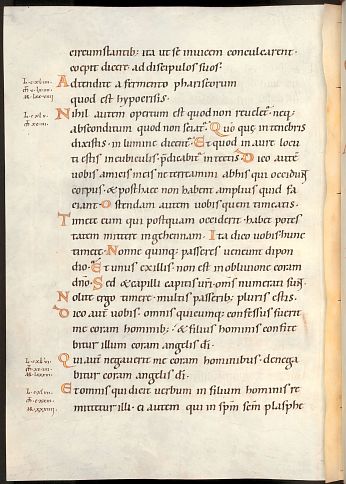 circumstantib; ita ut se invicem conculcarent.
coepit dicere ad discipulos suos.
Adtendite a fermento phariseorum
quod est hypocrisis.
Nihil autem opertum est quod non reveletur. neq;
absconditum quod non sciat. Quo que intenebris
dixistis. in lumine dicent. Et quod in aure locu
ti estis incubiculis. pdicabit intectis. Dico aute
vobis amicis meis. ne terreamini abhis qui occidunt
corpus. & posthaec non habent amplius quid fa
ciant. Ostendam autem vobis quem timeatis.
Timete eum qui postquam occiderit. habet potes
tatem mittere ingehennam. Ita dico vobis hunc
timete. Nonne quinq; passeres veneunt dipon
dio. Et unus exillis. non est inoblivione coram
dno. Sed & capilli capitis uri. oms numerati sunt.
Nolite ergo timere. multis passerib; pluris estis.
Dico aut vobis. omnis quicumq; confessus fuerit
me coram hominib; & filius hominis confite
bitur illum coram angelis di.
Qui aut negaverit me coram hominibus. denega
bitur coram angelis di.
Et omnis qui dicit verbum in filium hominis re
mittetur illi. ei autem qui in spm scm blasphe